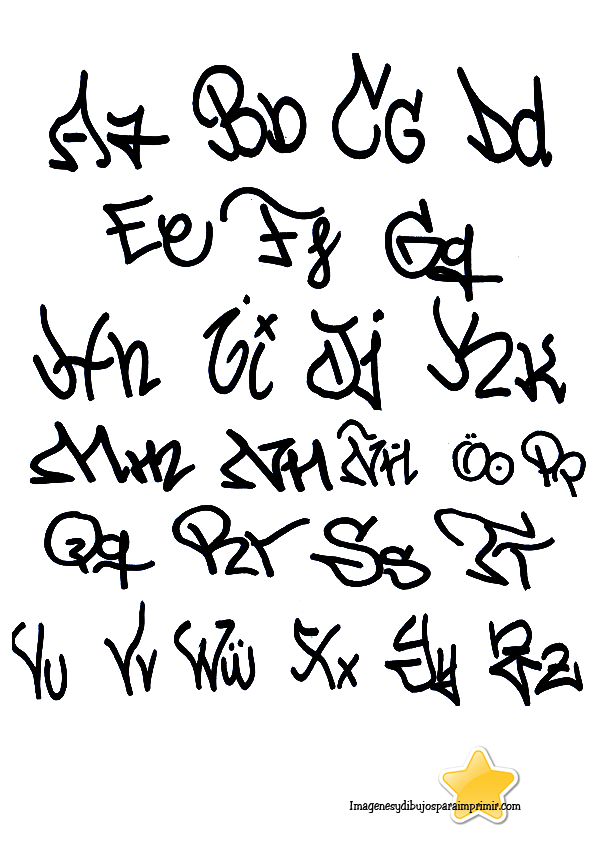 Aa Bb Cc Dd
Ee Ff Gg
Hh Ii Jj Kk
Mm Nn Ññ Öo Pp
Qq Rr Ss Tt
Vu Vv Ww Xx Yy Zz
Imagenesydibujosparaimprimir.com